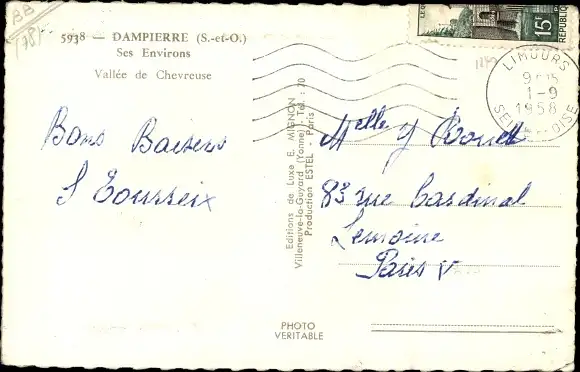 BB
(78)
5938 — DAMPIERRE (S.-et-O.)
Ses Environs
Vallée de Chevreuse
15F
LIMOURS
1-9
1958
SEINE-ET-OISE
Bons Baisers
Editions de Luxe E. MIGNON
Villeneuve-la-Guyard (Yonne) - Tél. : 70
Production ESTEL - Paris
Melle Y
83 rue Cardinal
Lemoine
Paris V
PHOTO
VERITABLE